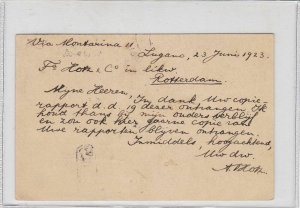 Via Montarina 11. Lugano, 23 Juni 1923.
Fa Hotz & Co in likw.
Rotterdam.
Myne Heeren, In dank Uw copie
rapport d.d. 19 dezer ontvangen. Ik
houd thans by myn ouders verblyf
en zou ook hier gaarne copie van
Uwe rapporten blyven ontvangen.
Inmiddels hoogachtend,
Uw dw.